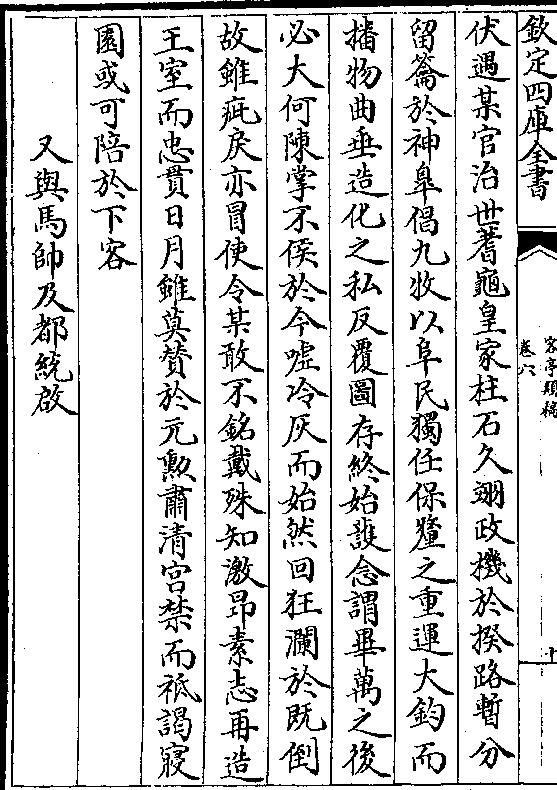 欽定四庫全書
客亭類稿
卷六
十
伏遇某官治世蓍龜皇家柱石久翊政機於揆路暫分
留籥於神臯倡九牧以阜民獨任保釐之重運大鈞而
播物曲垂造化之私反覆圖存終始護念謂畢萬之後
必大何陳掌不侯於今噓冷灰而始然回狂瀾於既倒
故雖疵戾亦冒使令某敢不銘戴殊知激昂素志再造
王室而忠貫日月雖莫贊於元勲肅清宫禁而祗謁寢
園或可陪於下客
又與馬帥及都統啟